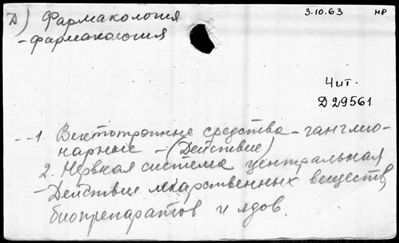 Д) Фармакология
3.10.63 НР
-фармакология
Чит.
Д 29561
-1. Вегетотропные средства - ганглио-
нарные - (Действие)
2. Нервная система центральная
-Действие лекарственных веществ,
биопрепаратов и ядов.